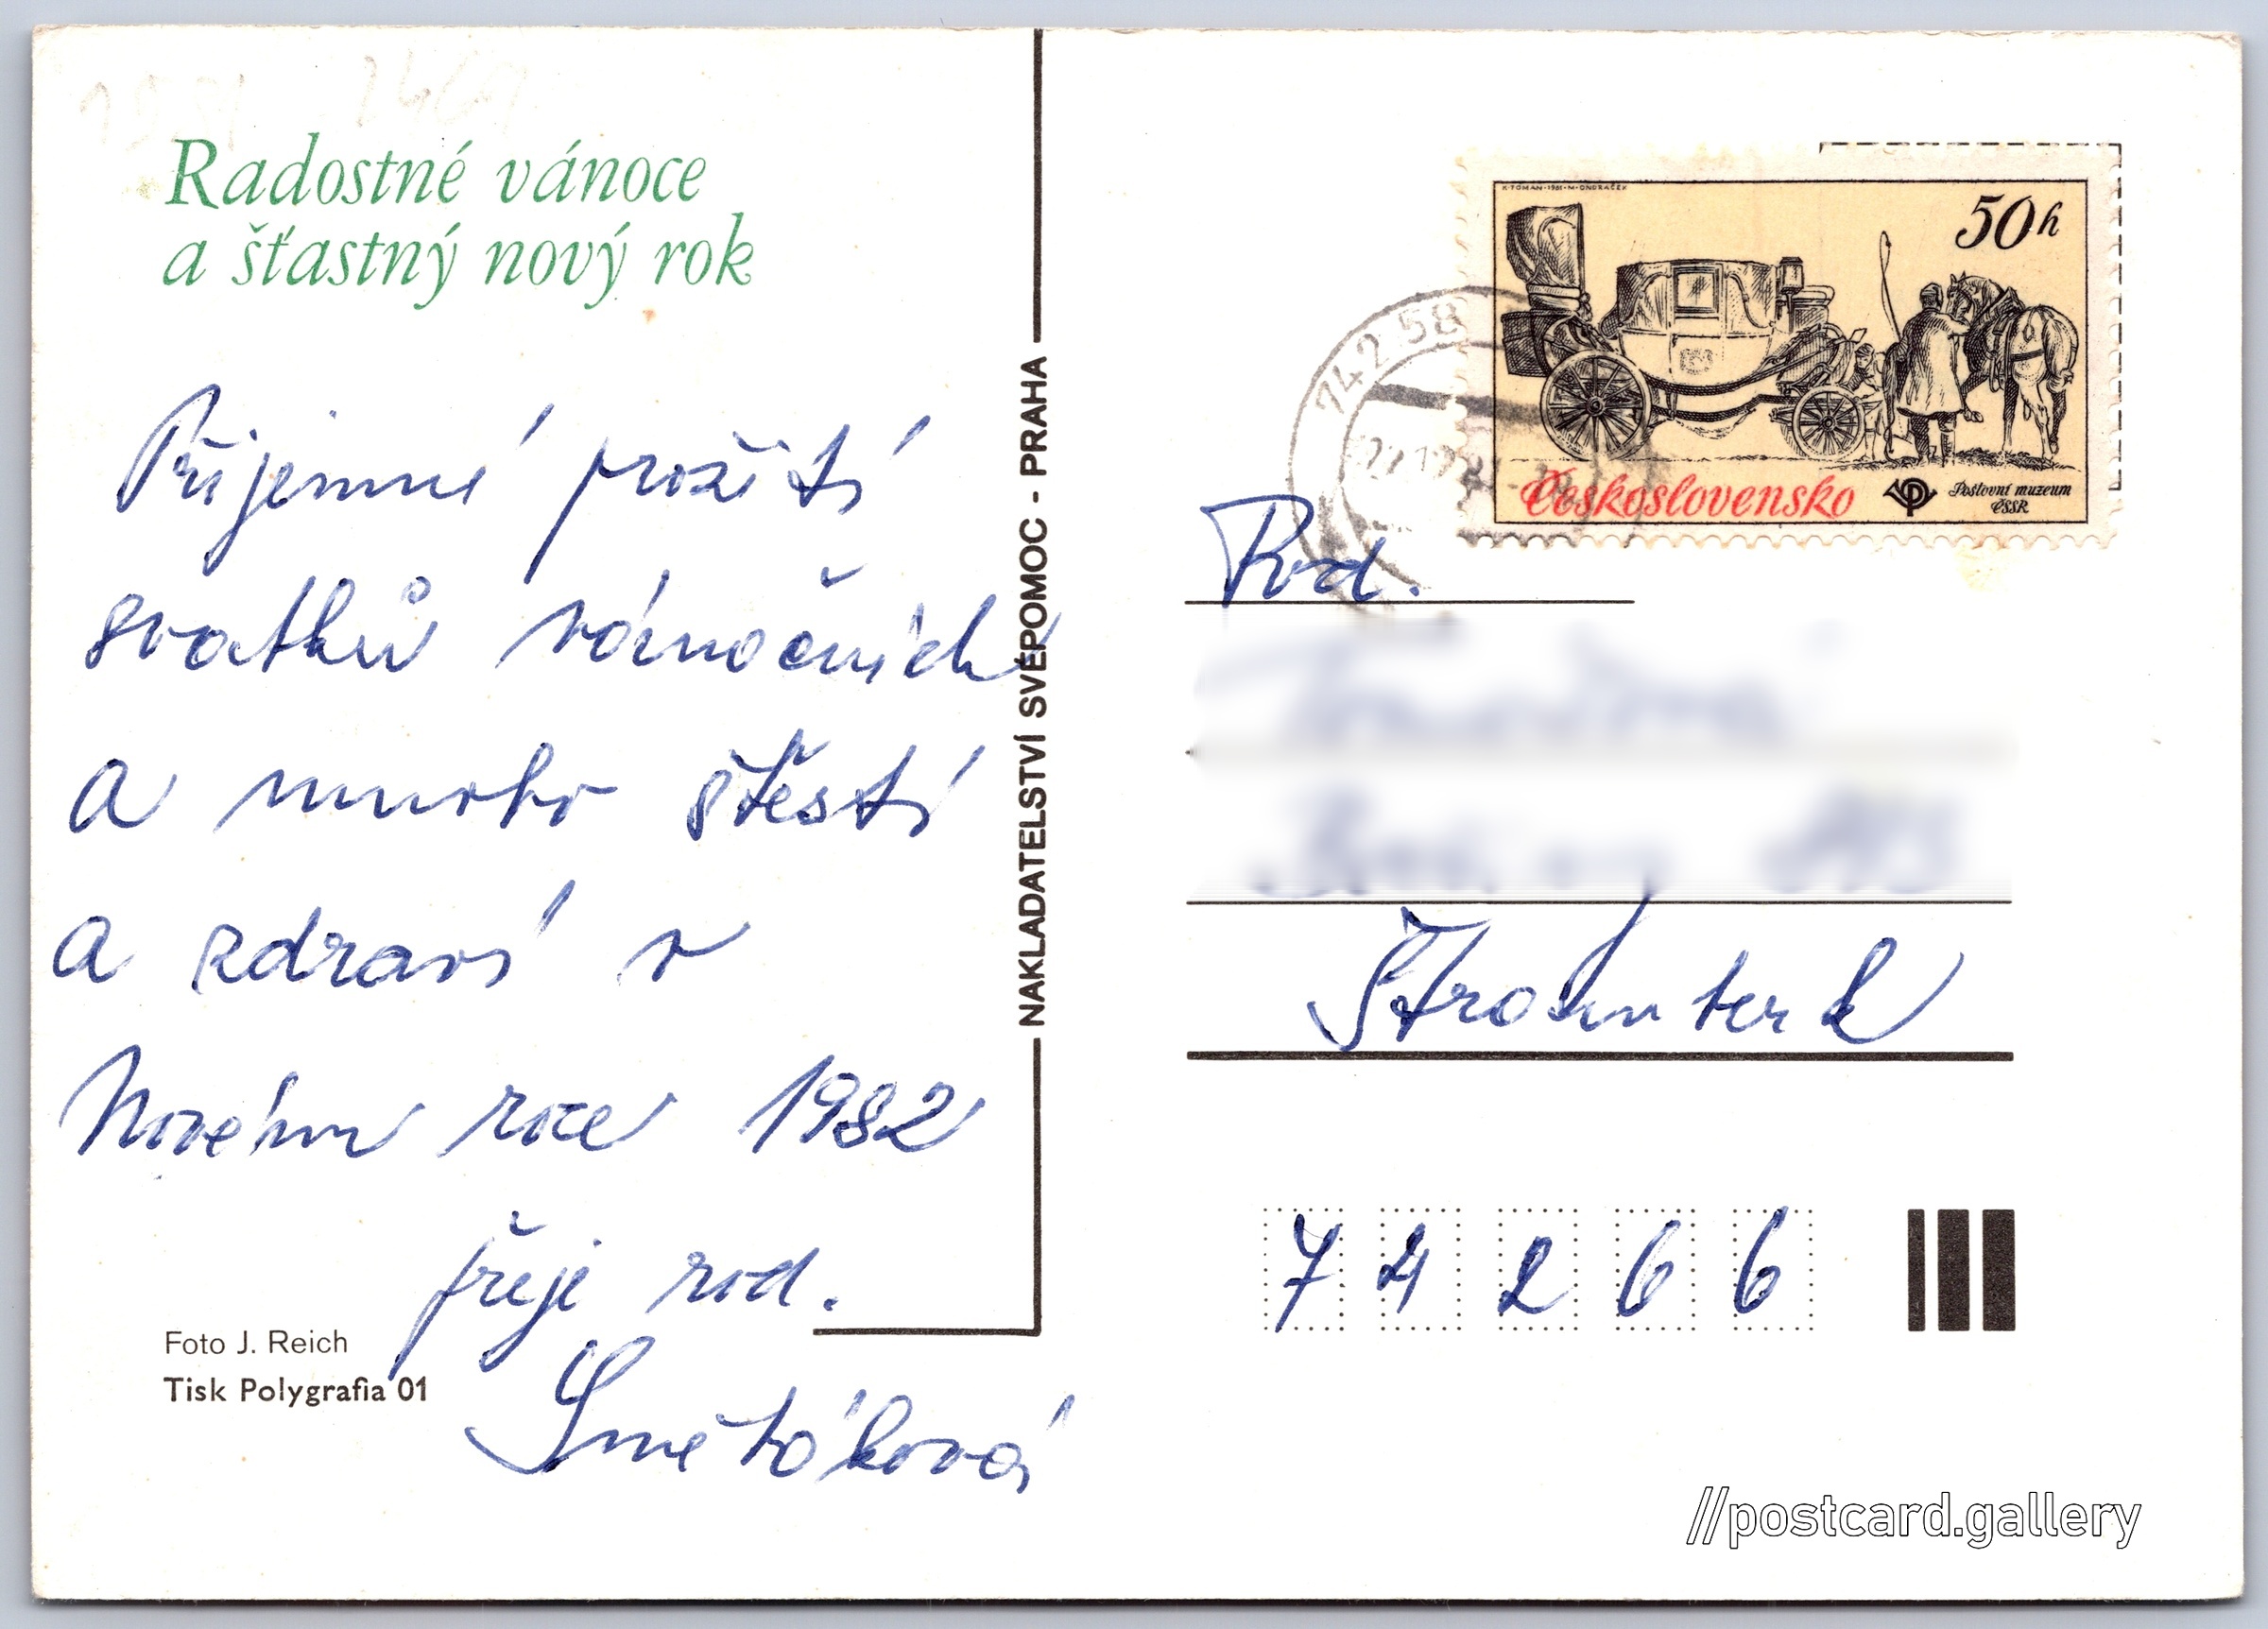 Radostné vánoce
a šťastný nový rok
Příjemné prožití
svatků vánočních
a mnoho štěstí
a zdraví v
Novém roce 1982
přeje rod.
Smetáková
Foto J. Reich
Tisk Polygrafia 01
NAKLADATELSTVÍ SVÉPOMOC - PRAHA
K. TOMAN · 1981 · M. ONDRÁČEK
50 h
Československo
Poštovní muzeum
ČSSR
742 58
Rod.
Štramberk
74266
//postcard.gallery